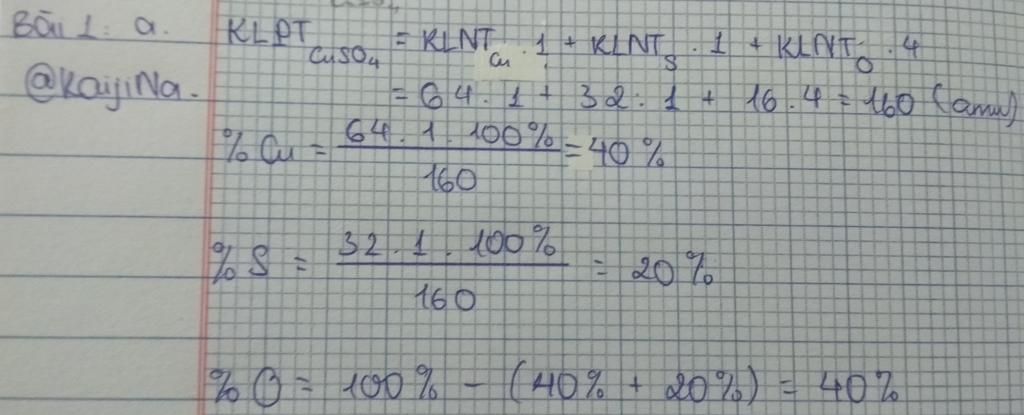 Bài 1: a. KLPT CuSO4 = KLNT Cu . 1 + KLNT S . 1 + KLNT O . 4
@KaijiNa. = 64 . 1 + 32 . 1 + 16 . 4 = 160 (amu)
% Cu = 64 . 1 . 100% / 160 = 40 %
% S = 32 . 1 . 100% / 160 = 20 %
% O = 100% - (40% + 20%) = 40%